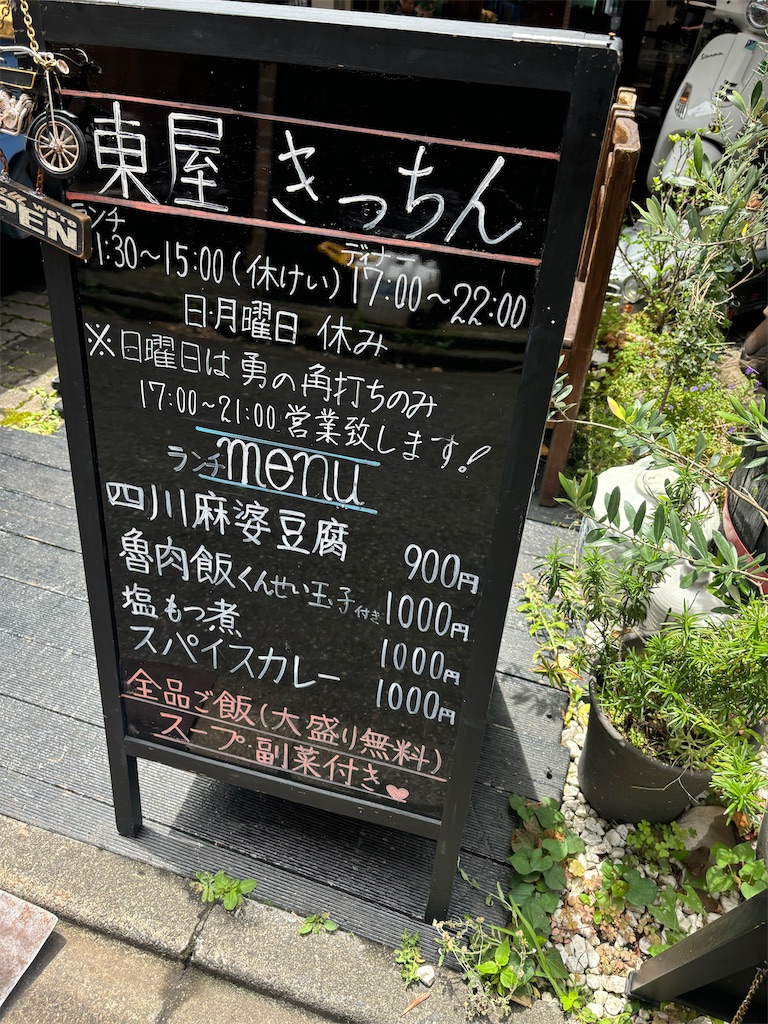 東屋 きっちん
ランチ ディナー
11:30～15:00(休けい)17:00～22:00
日・月曜日 休み
※日曜日は勇の角打ちのみ
17:00～21:00 営業致します!
ランチmenu
四川麻婆豆腐 900円
魯肉飯くんせい玉子付き 1000円
塩もつ煮 1000円
スパイスカレー 1000円
全品ご飯(大盛り無料)
スープ・副菜付き♥
OPEN
Vespa